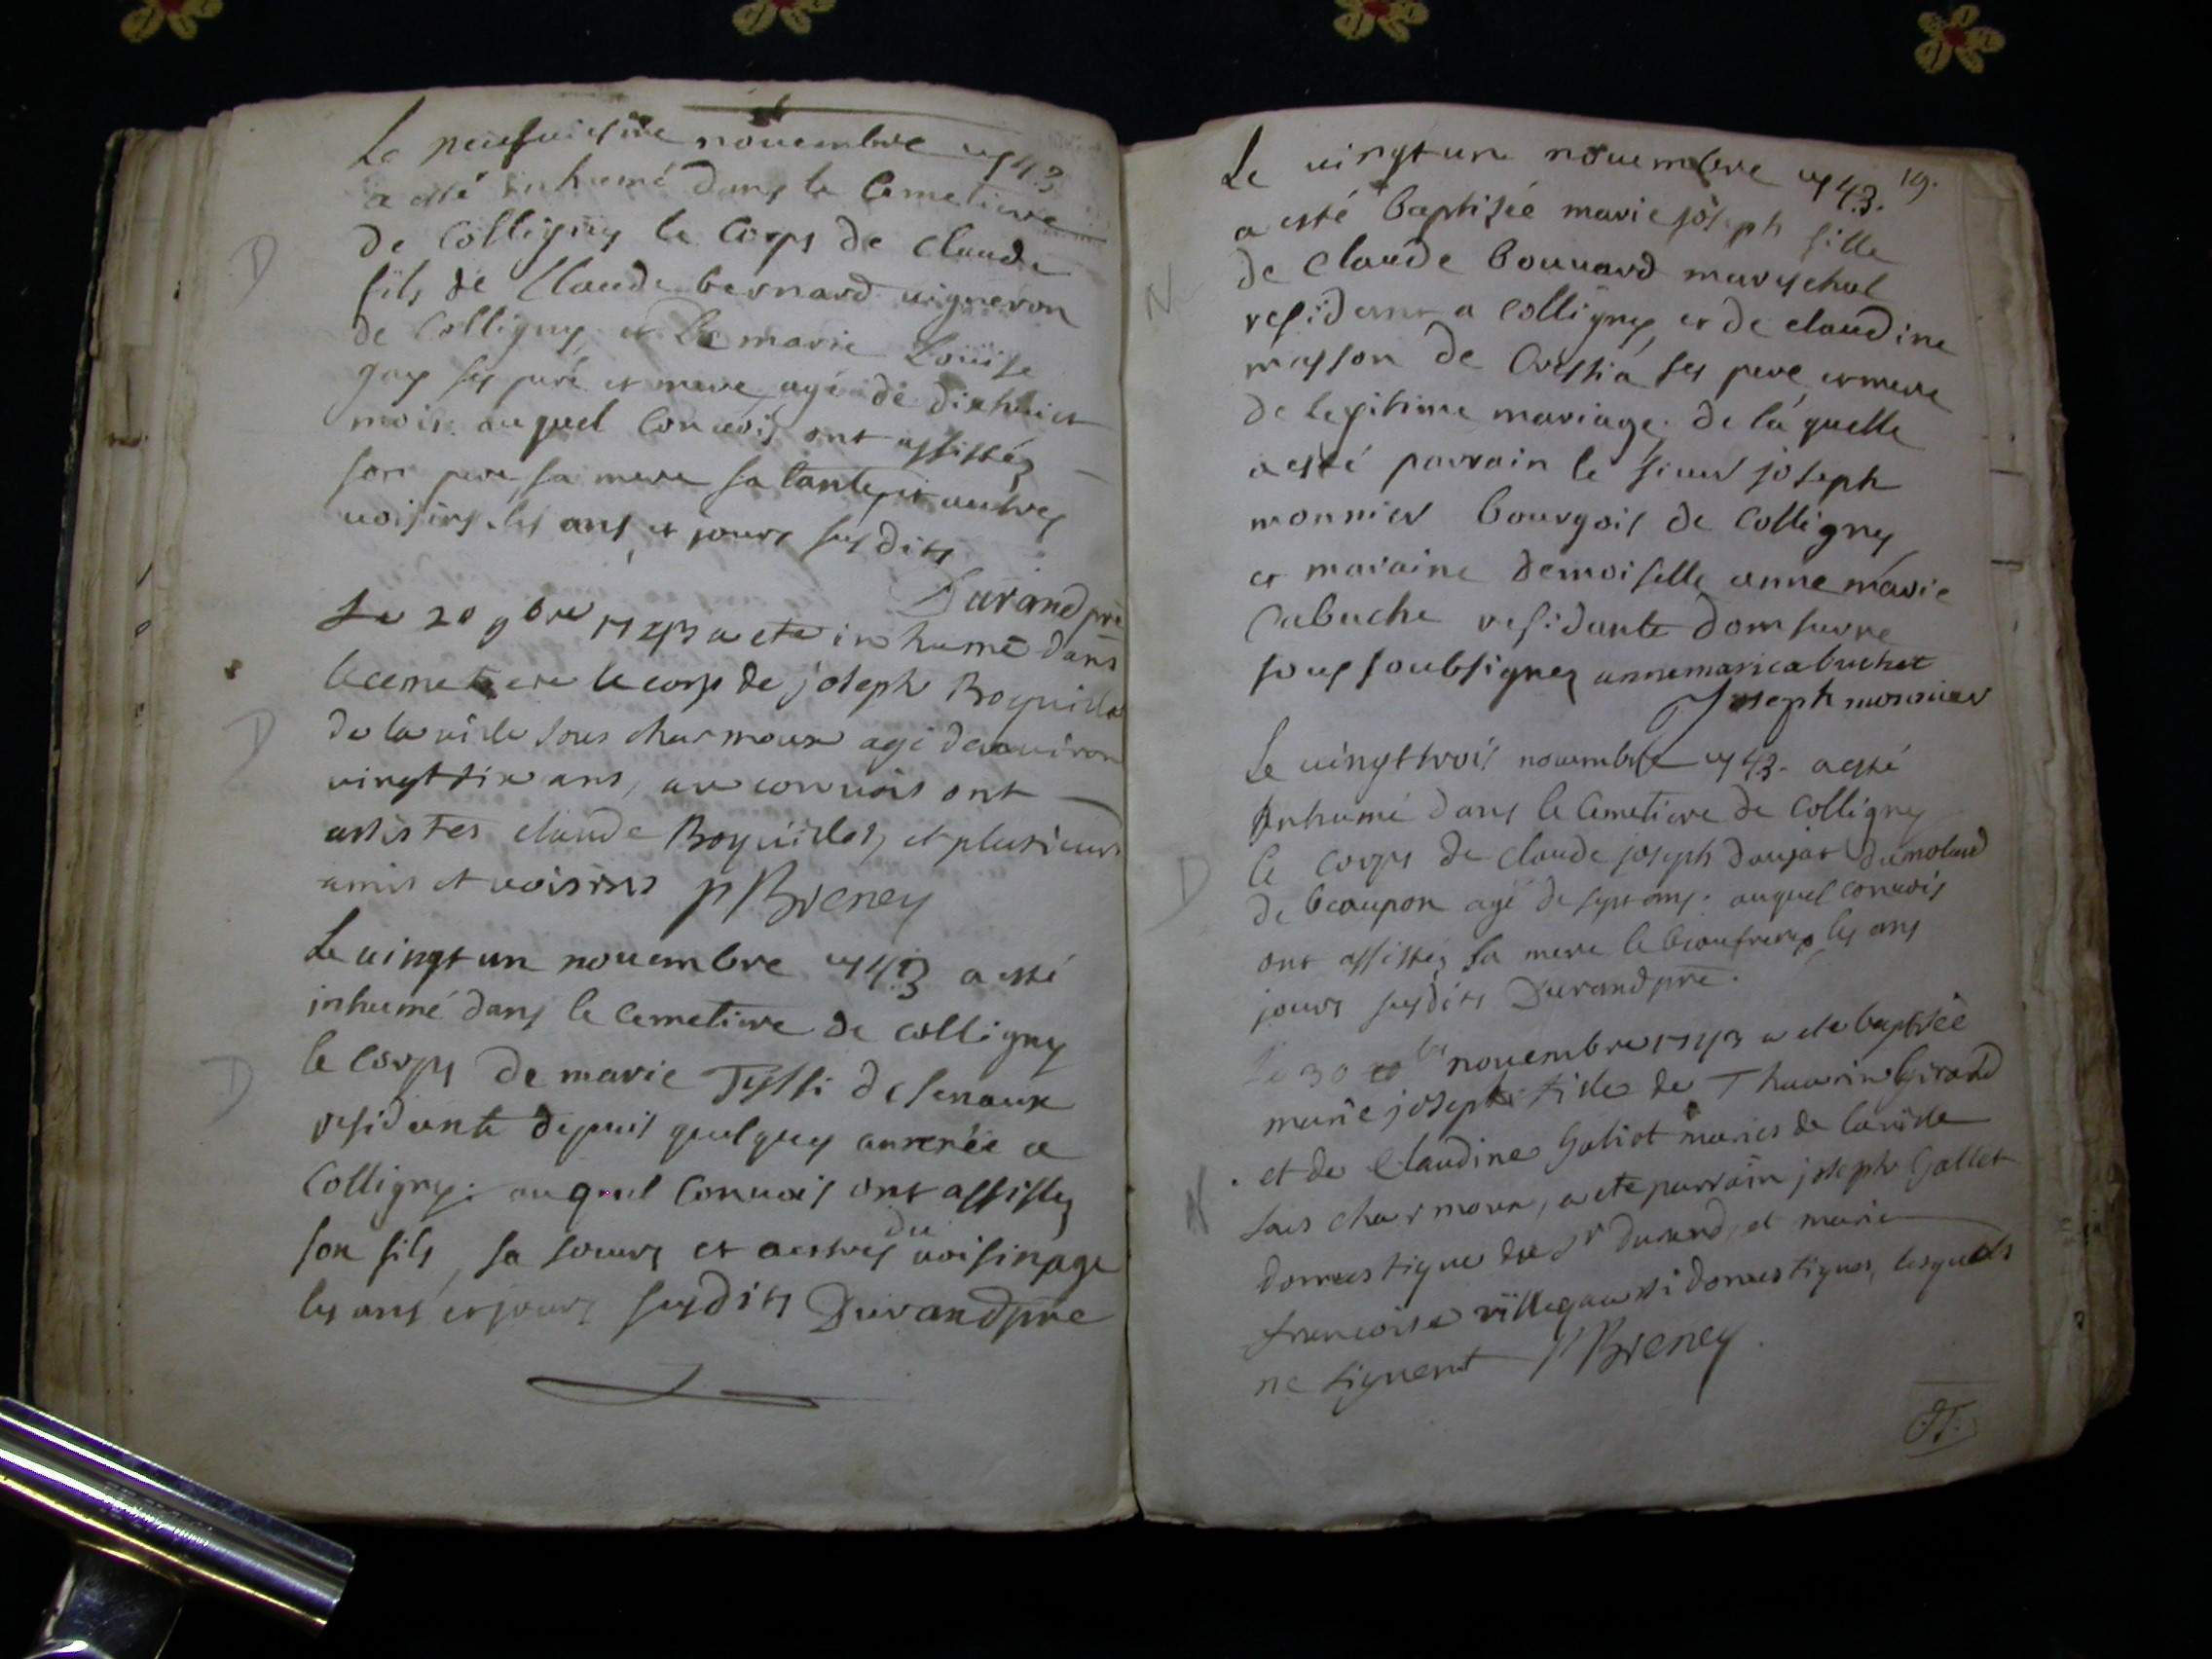 Le neufuiesme nouembre 1743
a esté inhumé dans le Cemetiere
D
de Colligny le Corps de Claude
fils de Claude bernard uigneron
de Colligny, et de marie Loüise
gay ses peré et mere, agé de dixhuict
mois. auquel Conuois ont assistéz
son pere, sa mere sa tante, et autres
uoisins. les ans, et jours susdits
Durand pre
Le 20 9bre 1743 a ete inhumé dans
le cemetiere le corps de joseph
D
de la uille sous charmoux agé denuiron
uingt six ans, au conuois ont
assistes claude et plusieurs
amis et uoisins p Breney
Le uingt un nouembre 1743 a esté
inhumé dans le Cemetiere de colligny
D
le Corps de marie Tissi de
residente depuis quelques année a
Colligny. auquel Conuois ont assistez
son fils, sa soeurs et autres du uoisinage
les ans et jours susdits Durand pre
19.
Le uingt un nouembre 1743.
a esté Baptisée marie joseph fille
de Claude Bouuard mareschal
N
residant a Colligny, et de claudine
masson de Cressia ses pere et mere
de legitime mariage. de la quelle
a esté parrain le sieur joseph
monnier Bourgois de Colligny
et maraine demoiselle anne marie
Cabuche residante
sous soubsignez anne marie cabuchet
Joseph monnier
Le uingt trois nouembre 1743. a esté
Inhumé dans le Cemetiere de Colligny
D
le Corps de claude joseph daujat dumolard
de beaupon agé de sept ans. auquel conuois
ont assistéz sa mere le beaufrere, les ans
jours susdits Durand pre.
Le 30 nouembre 1743 a ete baptisée
marie joseph fille de Thaurin Girard
. et de Claudine Galiot maries de la uille
N
sous charmoux, a ete parrain joseph Gallet
domestique du Sr durand, et marie
francoise domestiques, lesquels
ne signent p Breney